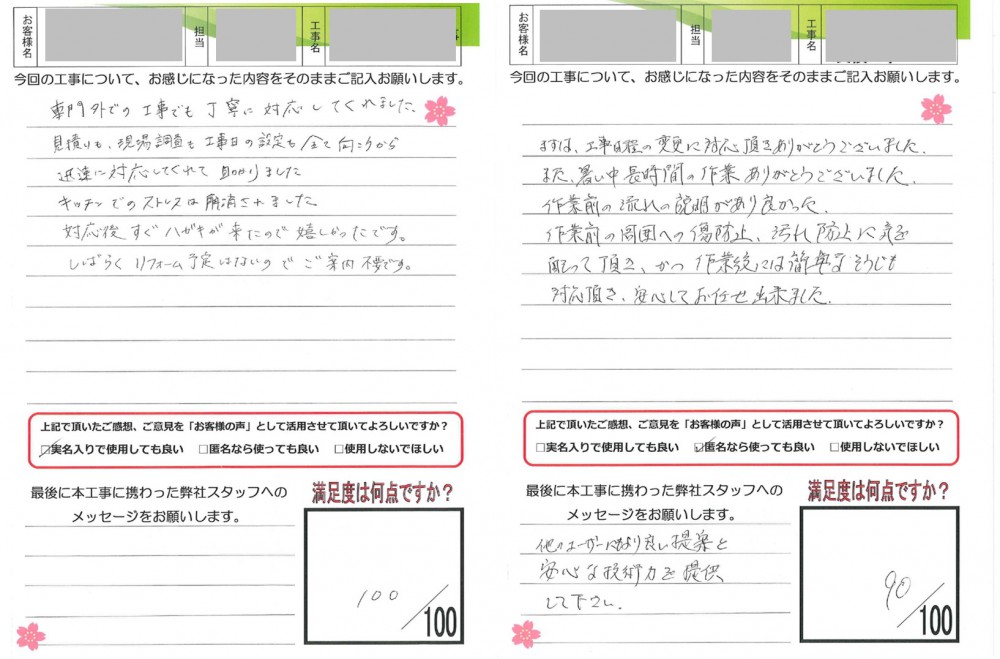 お客様名
担当
工事名
今回の工事について、お感じになった内容をそのままご記入お願いします。
専門外での工事でも丁寧に対応してくれました。
見積りも、現場調査も工事日の設定も全て向こうから
迅速に対応してくれて助かりました
キッチンでのストレスは解消されました
対応後すぐハガキが来たので嬉しかったです。
しばらくリフォーム予定はないのでご案内不要です。
上記で頂いたご感想、ご意見を「お客様の声」として活用させて頂いてよろしいですか？
☑実名入りで使用しても良い □匿名なら使っても良い □使用しないでほしい
最後に本工事に携わった弊社スタッフへの
メッセージをお願いします。
満足度は何点ですか？
100/100
お客様名
担当
工事名
今回の工事について、お感じになった内容をそのままご記入お願いします。
まずは、工事日程の変更に対応頂きありがとうございました。
また、暑い中長時間の作業ありがとうございました。
作業前の流れの説明があり良かった。
作業前の周囲への傷防止、汚れ防止に気を
配って頂き、かつ作業後には簡単なそうじも
対応頂き、安心してお任せ出来ました。
上記で頂いたご感想、ご意見を「お客様の声」として活用させて頂いてよろしいですか？
□実名入りで使用しても良い ☑匿名なら使っても良い □使用しないでほしい
最後に本工事に携わった弊社スタッフへの
メッセージをお願いします。
他のユーザーにもより良い提案と
安心な技術力を提供
して下さい。
満足度は何点ですか？
90/100